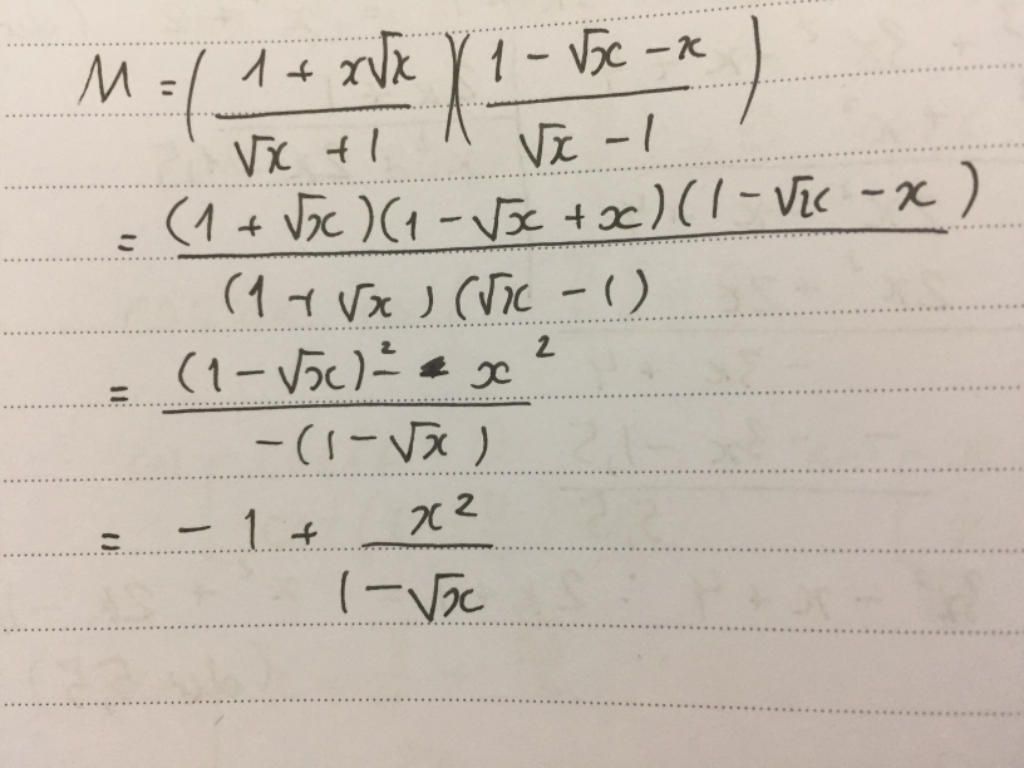 M = ( (1 + x√x)/(√x + 1) )( (1 - √x - x)/(√x - 1) )
= ((1 + √x)(1 - √x + x)(1 - √x - x))/((1 + √x)(√x - 1))
= ((1 - √x)² - x²)/(-(1 - √x))
= - 1 + x²/(1 - √x)